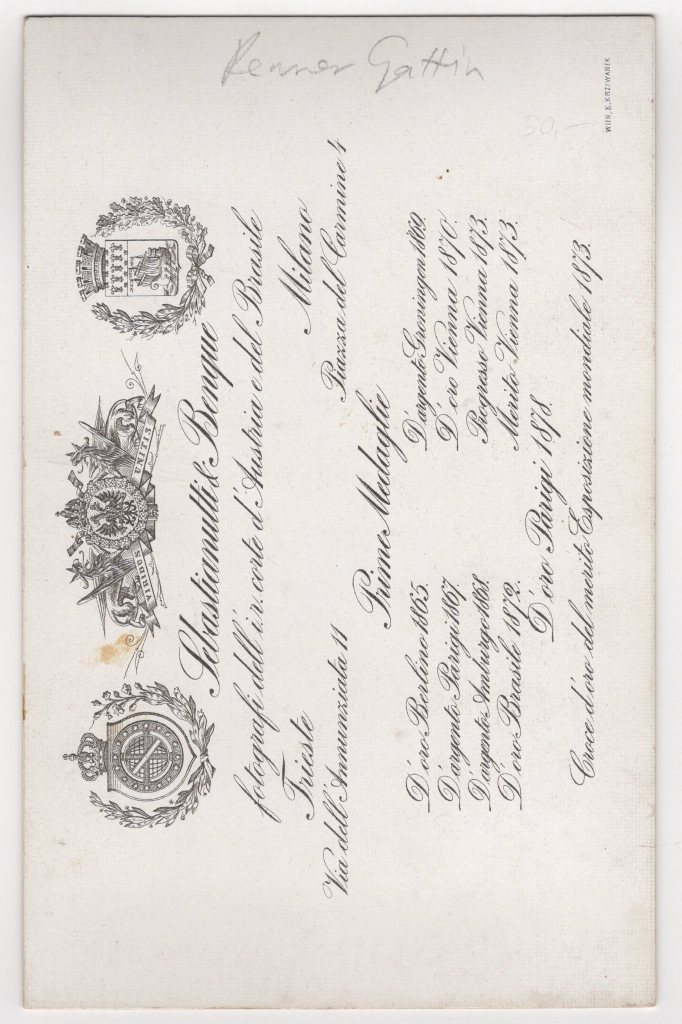 Renner Gattin
50,-
WIEN, K. KRZIWANEK
VIRIBUS UNITIS
Sebastianutti & Benque
fotografi dell' i. r. corte d'Austria e del Brasile
Trieste Milano
Via dell' Annunziata 11 Piazza del Carmine 4
Prime Medaglie
D'oro Berlino 1865. D'argento Groningau 1869.
D'argento Parigi 1867. D'oro Vienna 1870.
D'argento Amburgo 1868. Progresso Vienna 1873.
D'oro Brasile 1872. Merito Vienna 1873.
D'oro Parigi 1878.
Croce d'oro del merito Esposizione mondiale 1873.